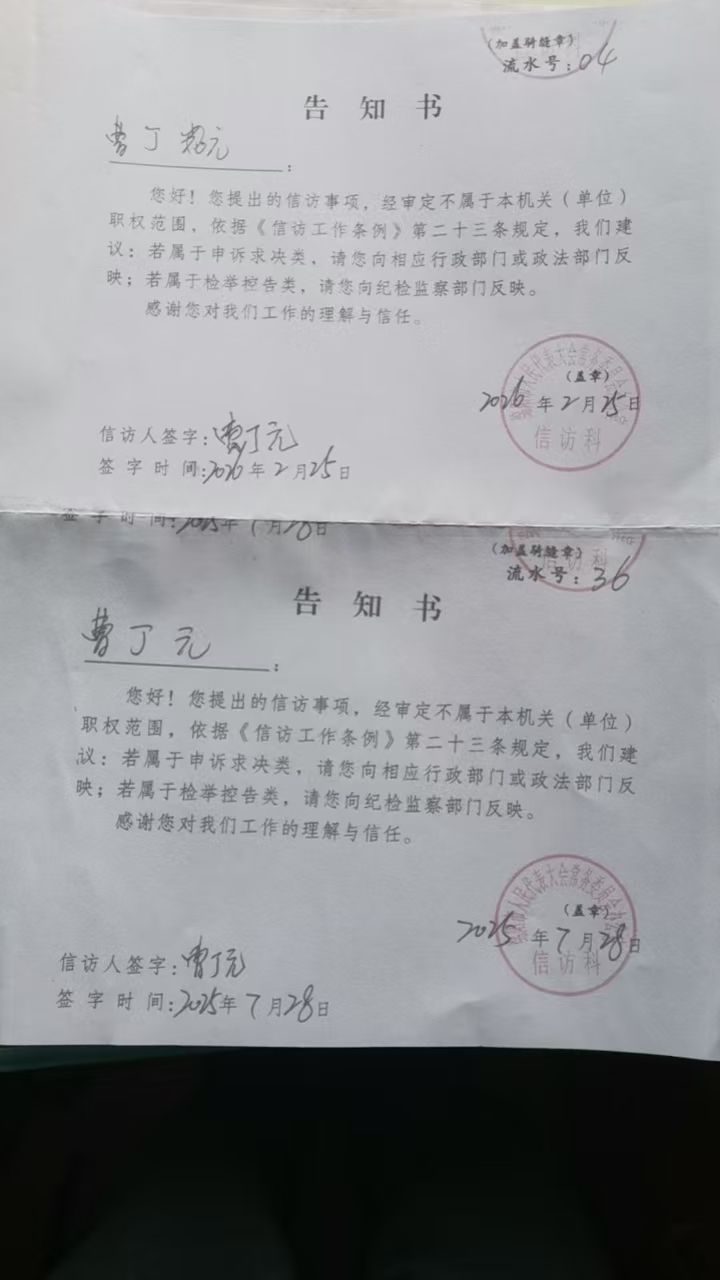 (加盖骑缝章)
流水号：04
告 知 书
曹丁元：
您好！您提出的信访事项，经审定不属于本机关（单位）
职权范围，依据《信访工作条例》第二十三条规定，我们建
议：若属于申诉求决类，请您向相应行政部门或政法部门反
映；若属于检举控告类，请您向纪检监察部门反映。
感谢您对我们工作的理解与信任。
人民代表大会常务委员会
(盖章)
2026年2月25日
信访科
信访人签字：曹丁元
签字时间：2026年2月25日
签字时间：2025年7月28日
信访科
(加盖骑缝章)
流水号：36
告 知 书
曹丁元：
您好！您提出的信访事项，经审定不属于本机关（单位）
职权范围，依据《信访工作条例》第二十三条规定，我们建
议：若属于申诉求决类，请您向相应行政部门或政法部门反
映；若属于检举控告类，请您向纪检监察部门反映。
感谢您对我们工作的理解与信任。
市人民代表大会常务委员会办
(盖章)
2025年7月28日
信访科
信访人签字：曹丁元
签字时间：2025年7月28日